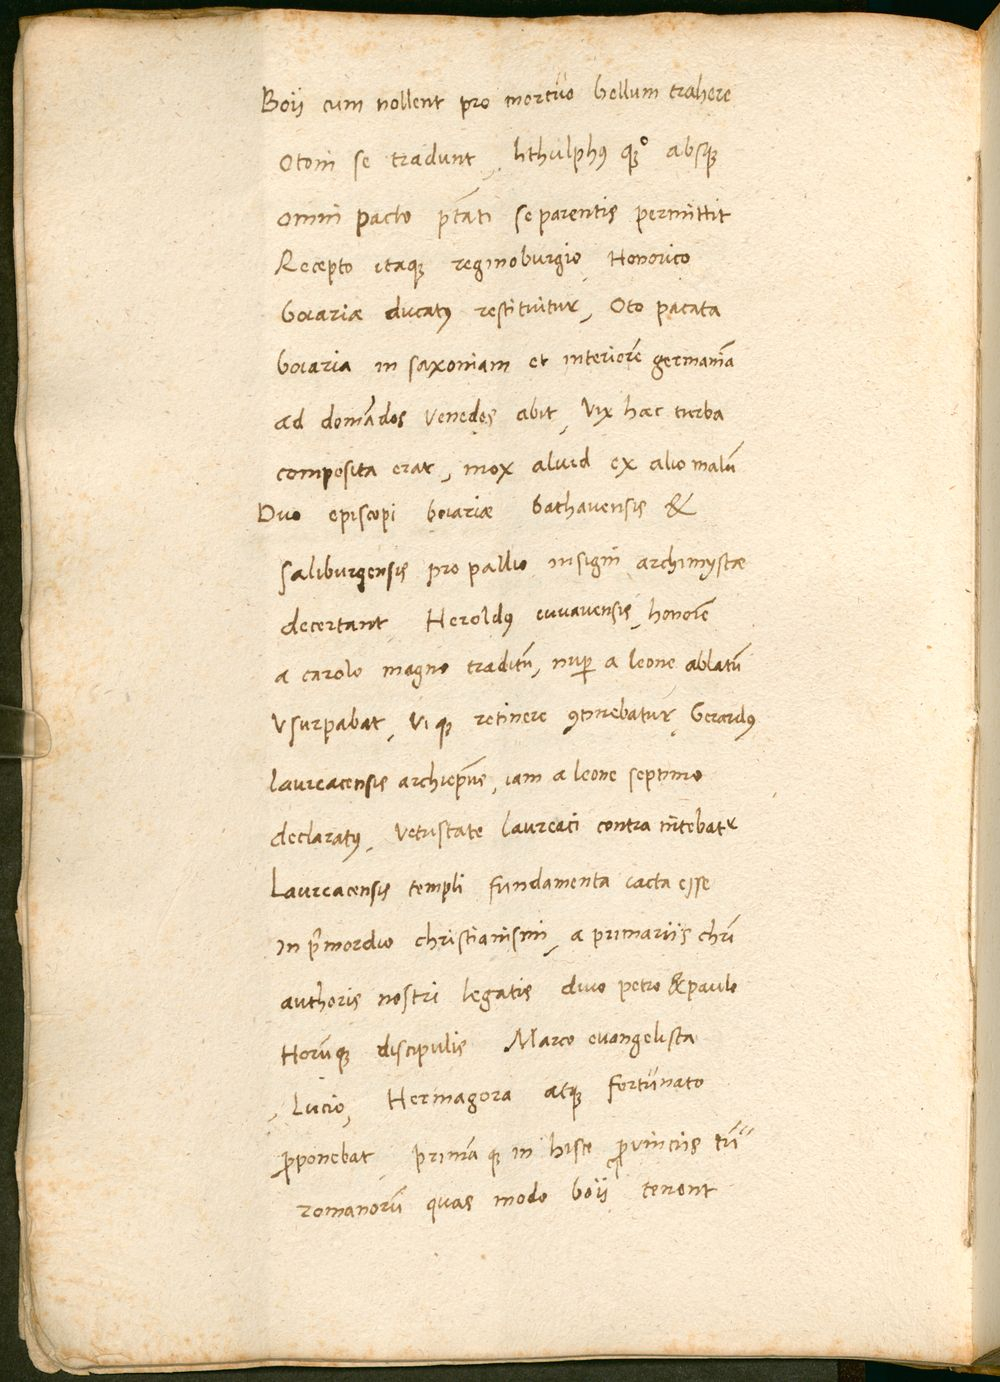 Boij cum nollent pro mortuo bellum trahere
Otoni se tradunt, lithulphꝰ qꝫ° absqꝫ
omni pacto p̄tati se parentis permittit
Recepto itaqꝫ reginoburgio, Honorico
boiariæ ducatꝰ restituitur, Oto pacata
boiaria in saxoniam et interiorē germaniā
ad domādos venedos abit, Vix hæc turba
composita erat, mox aluid ex alio malū
Duo episcopi boiariæ bathauensis &
saliburgensis pro pallio insigni archimystæ
decertant, Heroldꝰ iuuauensis, honorē
a carolo magno traditū, nuꝑ a leone ablatū
Vsurpabat, Vi qꝫ retinere ꝯtinebatur, Gerardꝰ
laureacensis archiep̄us, iam a leone septimo
declaratꝰ, vetustate laureaci contra nitebatᵣ
Laureacensis templi fundamenta iacta esse
In p̄mordio christianismi, a primariis chrī
authoris nostri legatis diuo petro & paulo
Horūqꝫ discipulis Marco euangelista
, Lucio, Hermagora atqꝫ fortunato
ꝓponebat, primā qꝫ in hisce ꝓuinciis tū
romanorū quas modo boij tenent